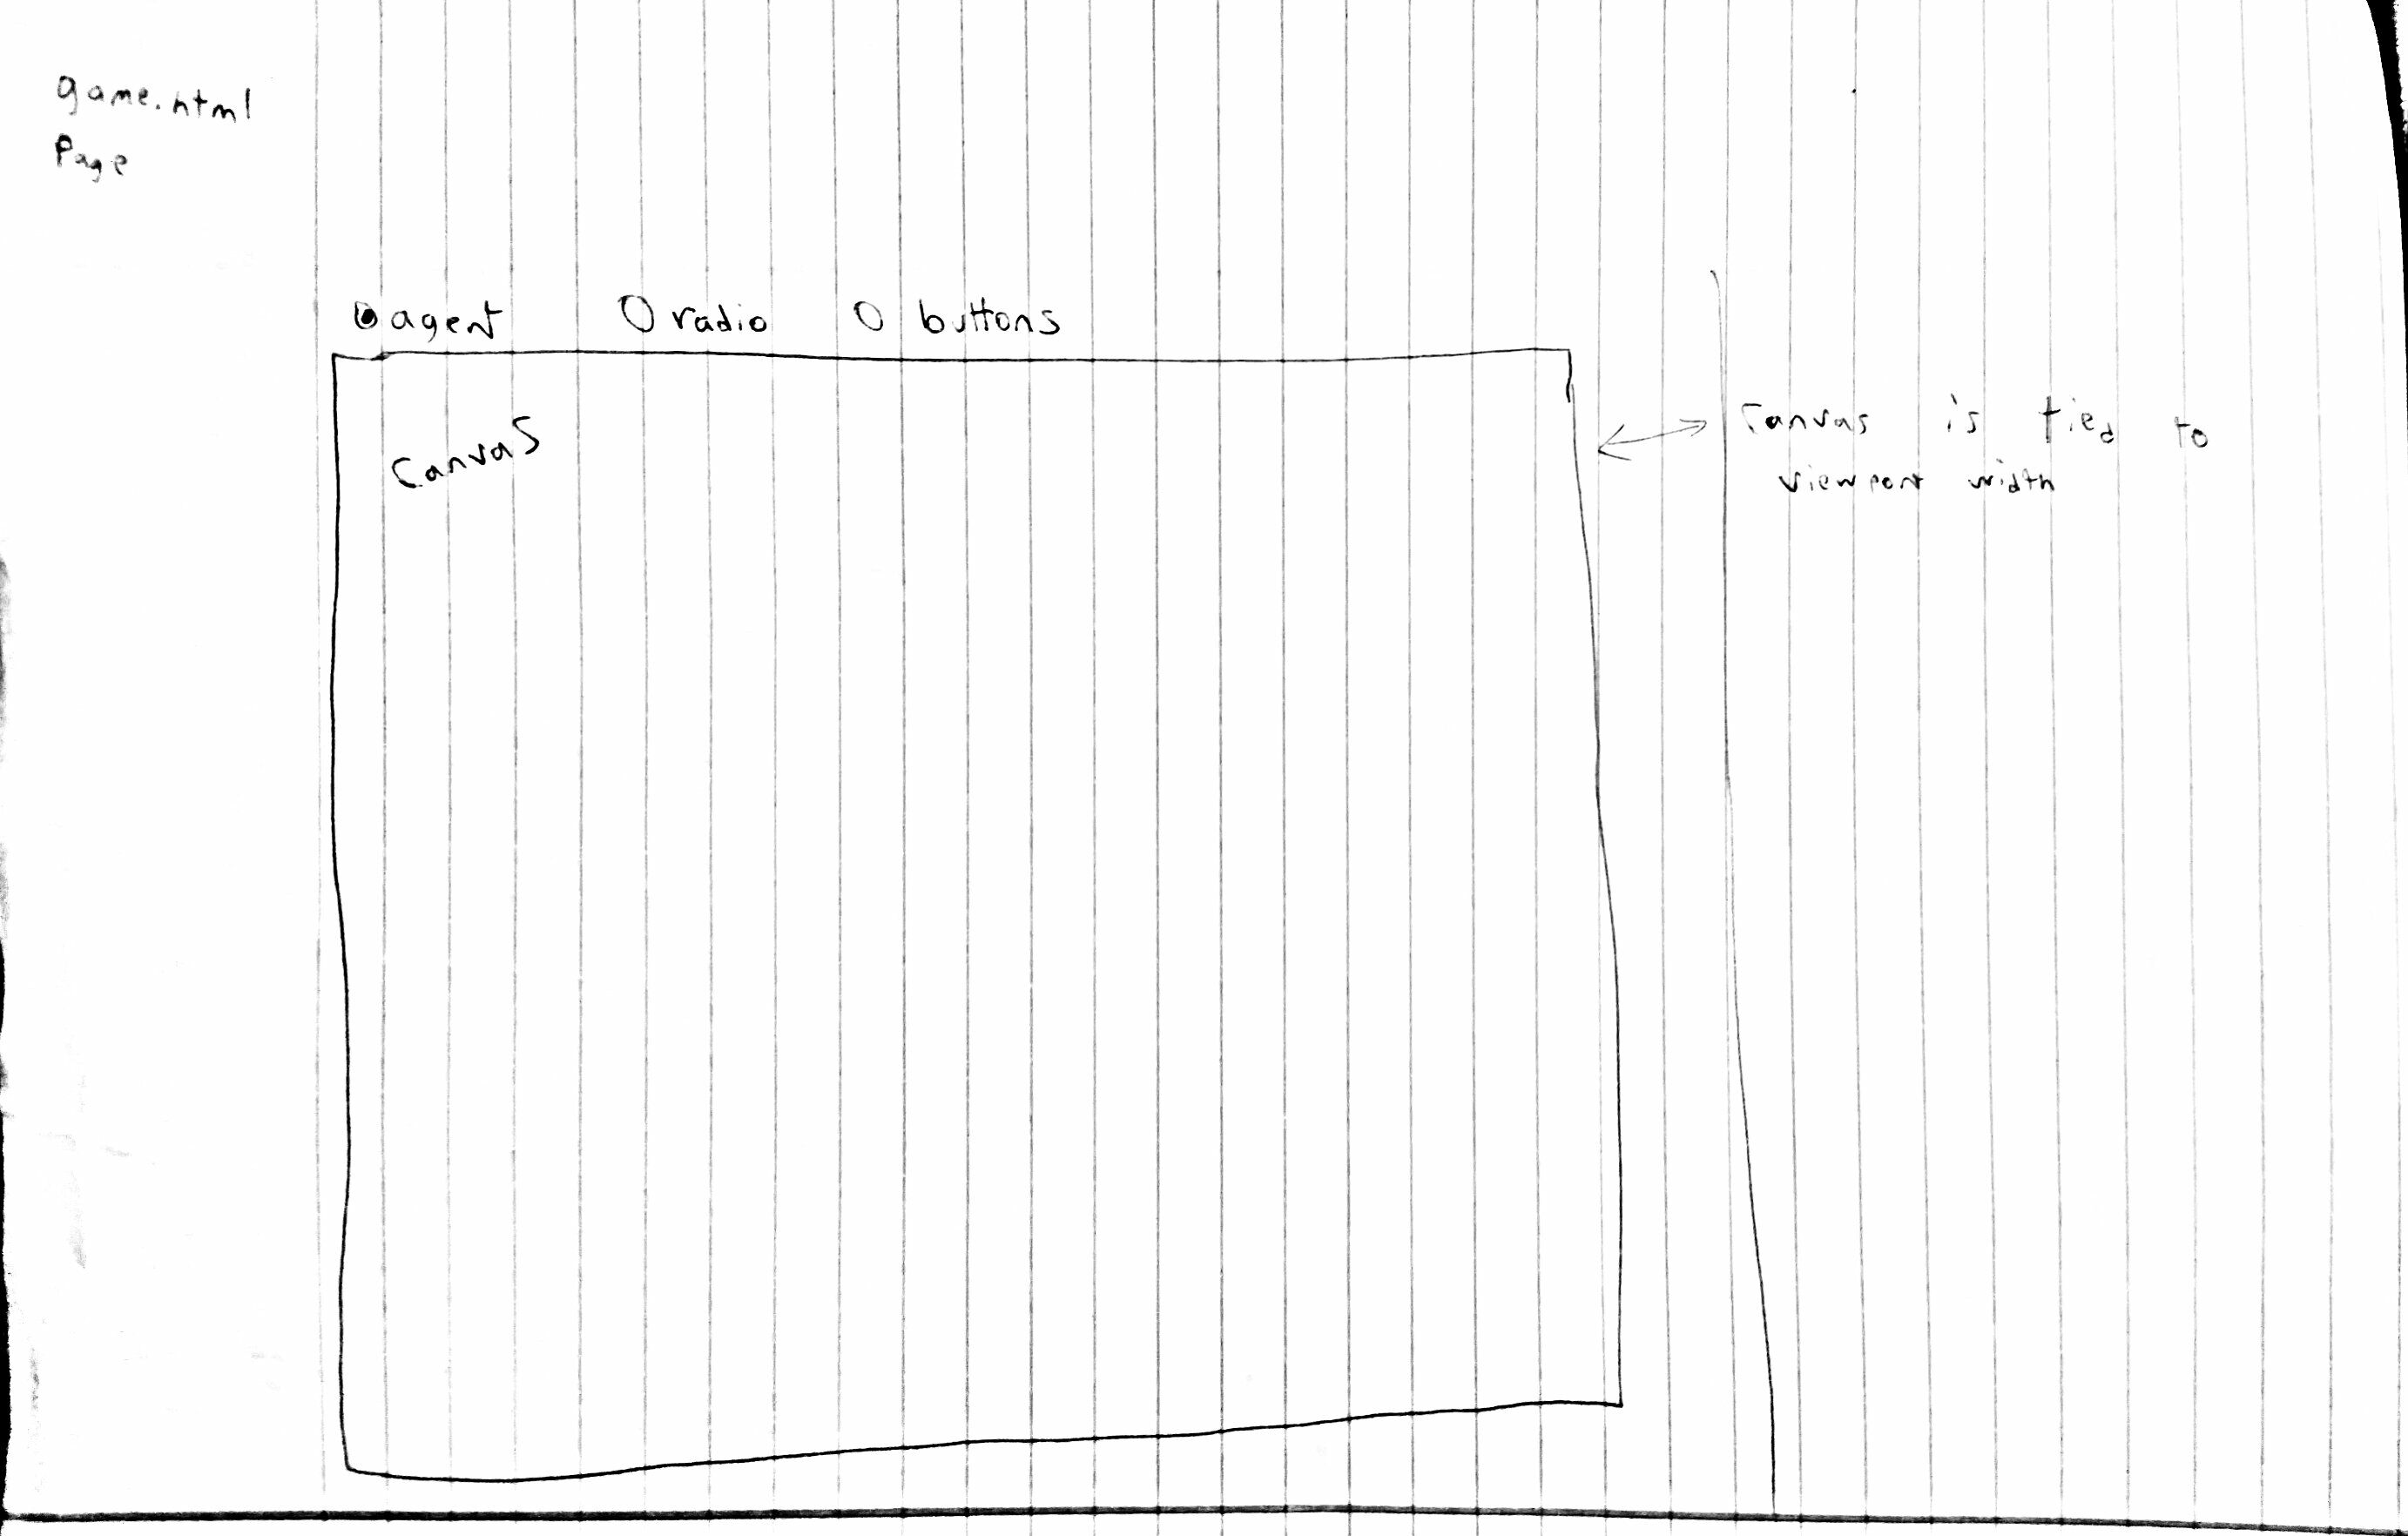 game.html
Page
agent radio buttons
canvas
canvas is tied to
viewport width